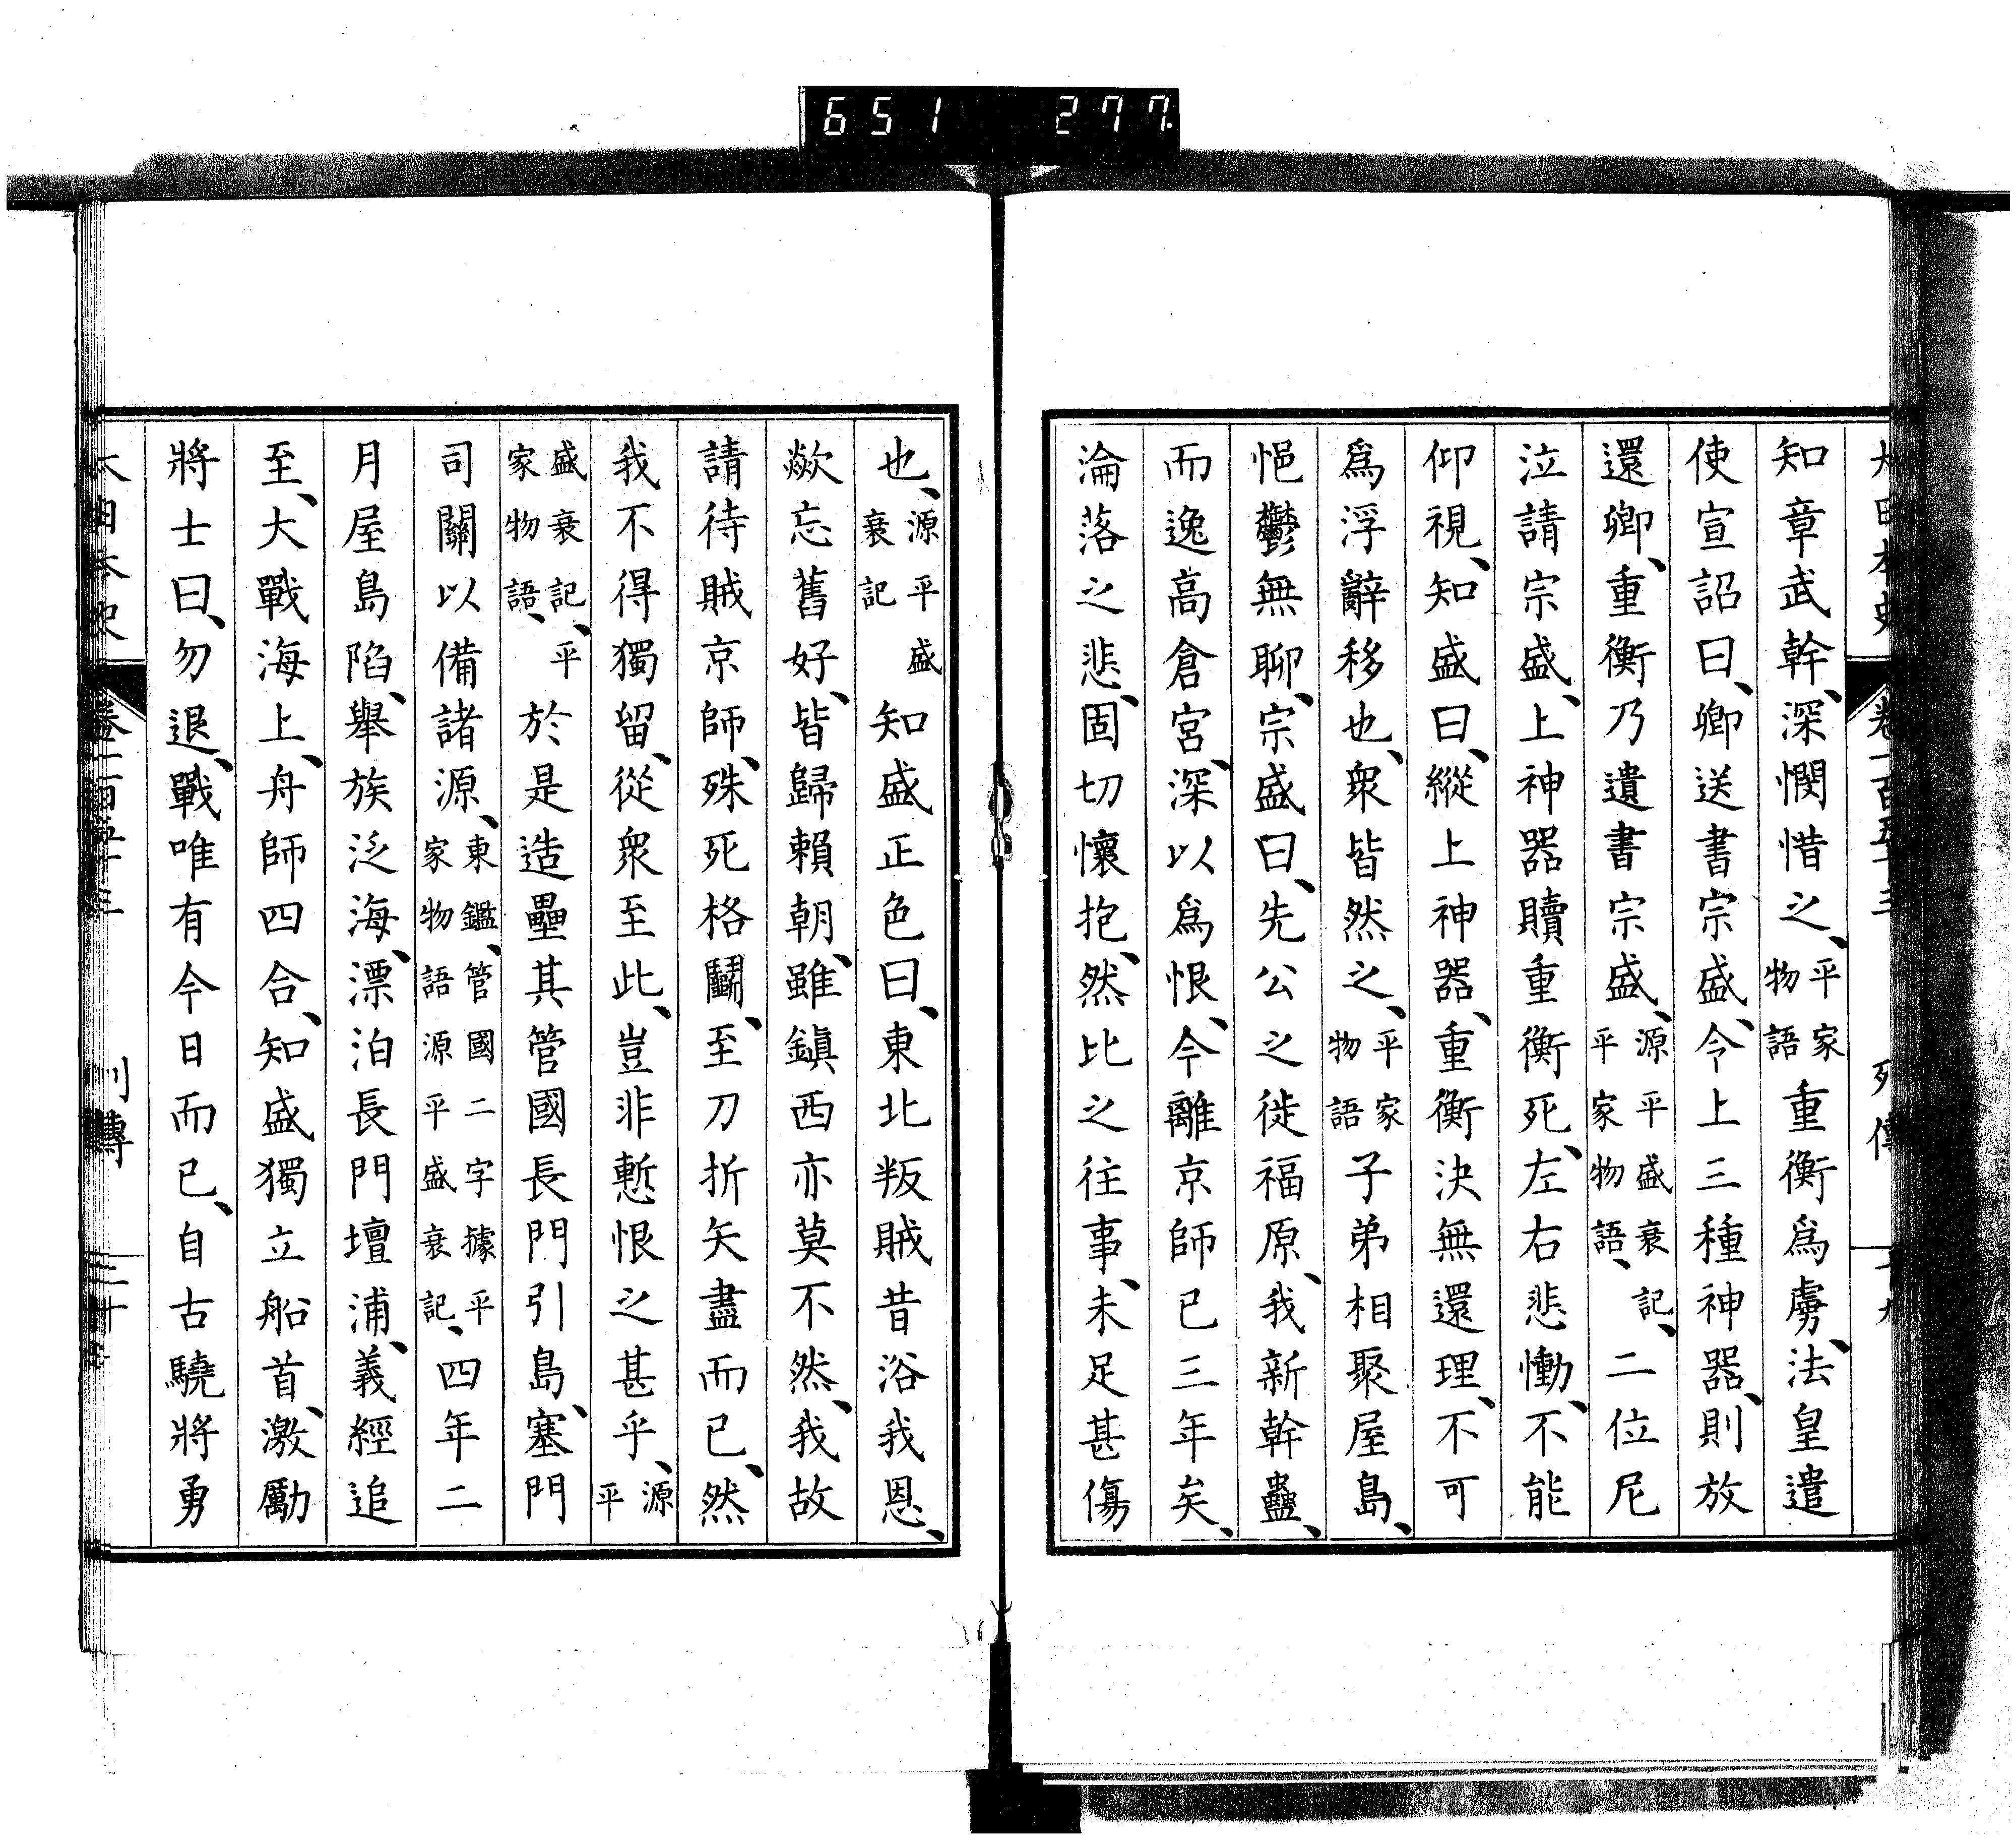 651 277.
大日本史 卷一百五十三 列傳 十九
知章武幹、深憫惜之、平家物語重衡爲虜、法皇遣
使宣詔曰、卿送書宗盛、令上三種神器、則放
還卿、重衡乃遺書宗盛、源平盛衰記、平家物語、二位尼
泣請宗盛、上神器贖重衡死、左右悲慟、不能
仰視、知盛曰、縱上神器、重衡決無還理、不可
爲浮辭移也、衆皆然之、平家物語子弟相聚屋島、
悒鬱無聊、宗盛曰、先公之徙福原、我新幹蠱、
而逸高倉宮、深以爲恨、今離京師已三年矣、
淪落之悲、固切懷抱、然比之往事、未足甚傷
也、源平盛衰記知盛正色曰、東北叛賊昔浴我恩、
歘忘舊好、皆歸賴朝、雖鎭西亦莫不然、我故
請待賊京師、殊死格鬭、至刀折矢盡而已、然
我不得獨留、從衆至此、豈非慙恨之甚乎、源平
盛衰記、平家物語、於是造壘其管國長門引島、塞門
司關以備諸源、東鑑、管國二字據平家物語源平盛衰記、四年二
月屋島陷、舉族泛海、漂泊長門壇浦、義經追
至、大戰海上、舟師四合、知盛獨立船首、激勵
將士曰、勿退、戰唯有今日而已、自古驍將勇
大日本史 卷一百五十三 列傳 二十